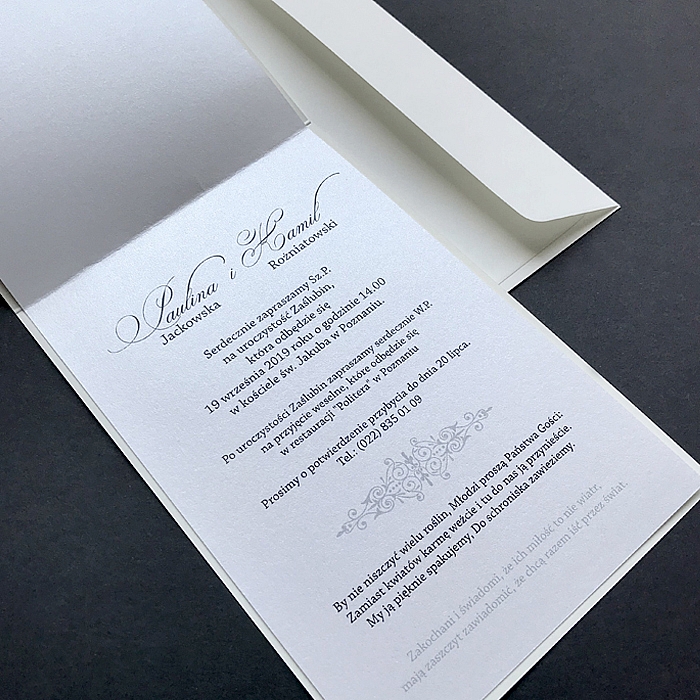 Paulina i Kamil
Jackowska Roźniatowski
Serdecznie zapraszamy Sz.P.
na uroczystość Zaślubin,
która odbędzie się
19 września 2019 roku o godzinie 14.00
w kościele św. Jakuba w Poznaniu.
Po uroczystości Zaślubin zapraszamy serdecznie W.P.
na przyjęcie weselne, które odbędzie się
w restauracji "Politera" w Poznaniu
Prosimy o potwierdzenie przybycia do dnia 20 lipca.
Tel.: (022) 835 01 09
By nie niszczyć wielu roślin, Młodzi proszą Państwa Gości:
Zamiast kwiatów karmę weźcie i tu do nas ją przynieście.
My ją pięknie spakujemy, Do schroniska zawieziemy.
Zakochani i świadomi, że ich miłość to nie wiatr,
mają zaszczyt zawiadomić, że chcą razem iść przez świat.